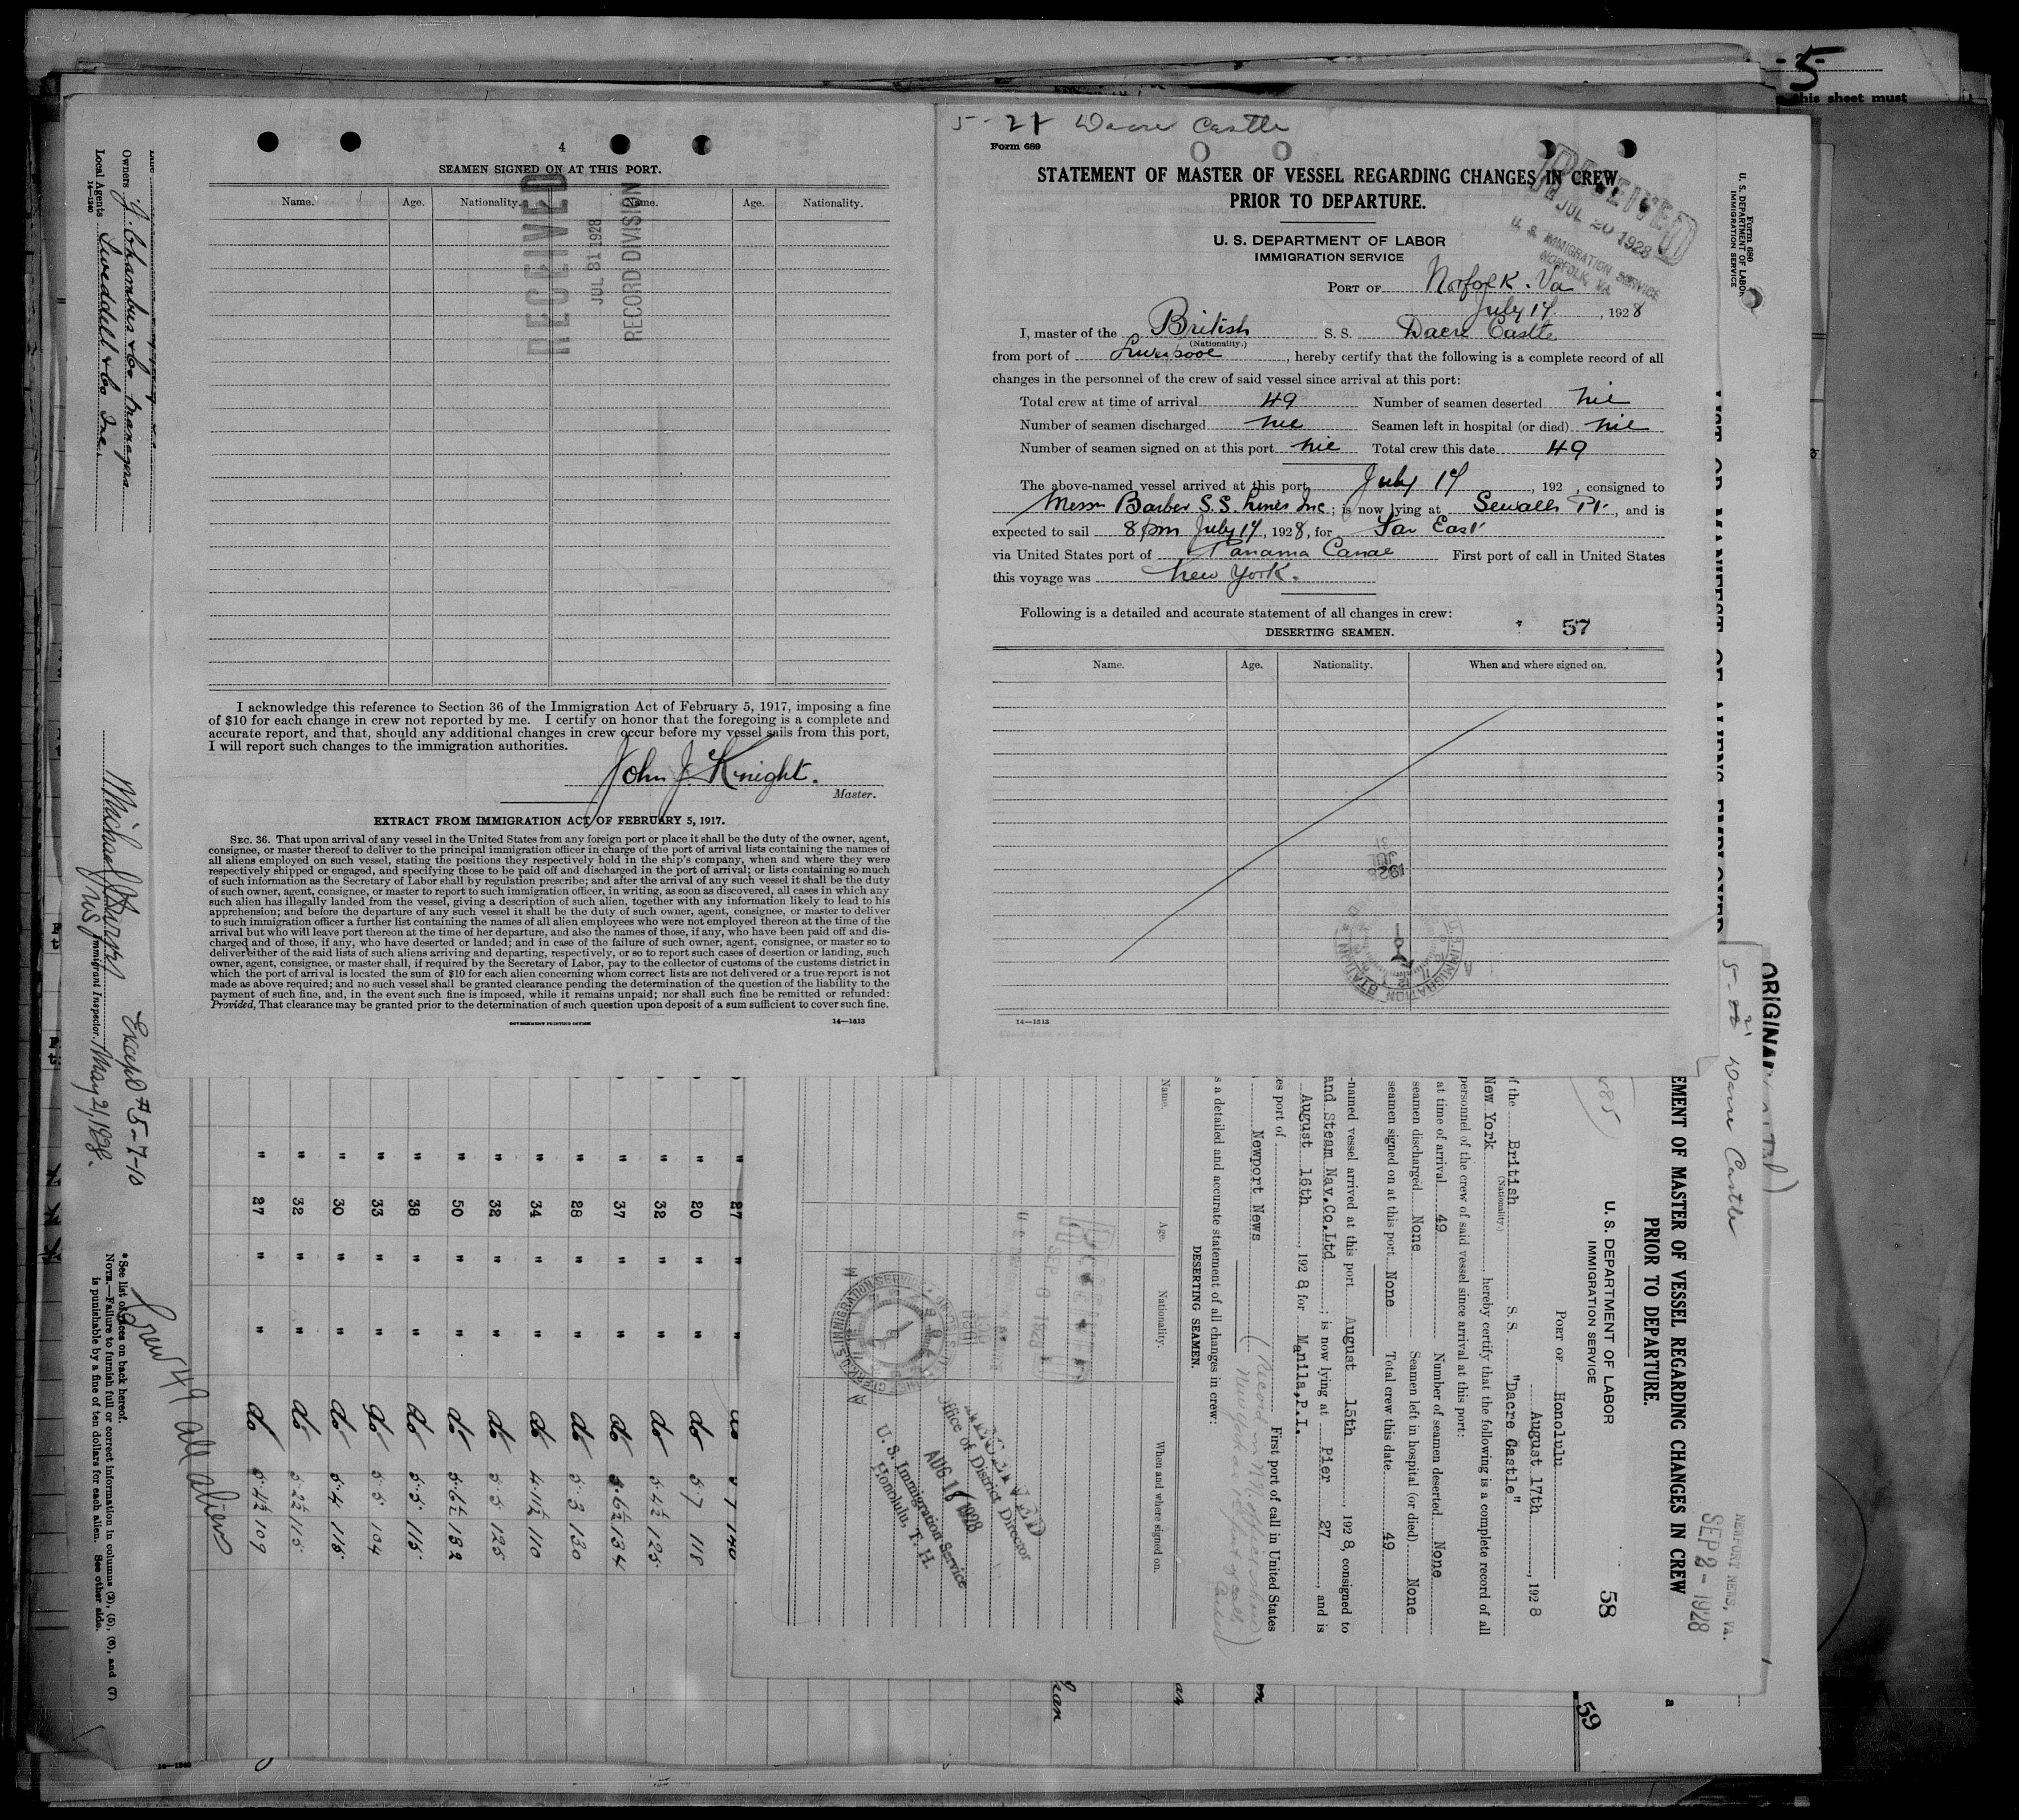 5
this sheet must
4
SEAMEN SIGNED ON AT THIS PORT.
Name. Age. Nationality. Name. Age. Nationality.
RECEIVED
JUL 31 1928
RECORD DIVISION
I acknowledge this reference to Section 36 of the Immigration Act of February 5, 1917, imposing a fine
of $10 for each change in crew not reported by me. I certify on honor that the foregoing is a complete and
accurate report, and that, should any additional changes in crew occur before my vessel sails from this port,
I will report such changes to the immigration authorities.
John J. Knight.
Master.
EXTRACT FROM IMMIGRATION ACT OF FEBRUARY 5, 1917.
SEC. 36. That upon arrival of any vessel in the United States from any foreign port or place it shall be the duty of the owner, agent,
consignee, or master thereof to deliver to the principal immigration officer in charge of the port of arrival lists containing the names of
all aliens employed on such vessel, stating the positions they respectively hold in the ship's company, when and where they were
respectively shipped or engaged, and specifying those to be paid off and discharged in the port of arrival; or lists containing so much
of such information as the Secretary of Labor shall by regulation prescribe; and after the arrival of any such vessel it shall be the duty
of such owner, agent, consignee, or master to report to such immigration officer, in writing, as soon as discovered, all cases in which any
such alien has illegally landed from the vessel, giving a description of such alien, together with any information likely to lead to his
apprehension; and before the departure of any such vessel it shall be the duty of such owner, agent, consignee, or master to deliver
to such immigration officer a further list containing the names of all alien employees who were not employed thereon at the time of the
arrival but who will leave port thereon at the time of her departure, and also the names of those, if any, who have been paid off and dis-
charged and of those, if any, who have deserted or landed; and in case of the failure of such owner, agent, consignee, or master so to
deliver either of the said lists of such aliens arriving and departing, respectively, or so to report such cases of desertion or landing, such
owner, agent, consignee, or master shall, if required by the Secretary of Labor, pay to the collector of customs of the customs district in
which the port of arrival is located the sum of $10 for each alien concerning whom correct lists are not delivered or a true report is not
made as above required; and no such vessel shall be granted clearance pending the determination of the question of the liability to the
payment of such fine, and, in the event such fine is imposed, while it remains unpaid; nor shall such fine be remitted or refunded:
Provided, That clearance may be granted prior to the determination of such question upon deposit of a sum sufficient to cover such fine.
GOVERNMENT PRINTING OFFICE
14—1613
5-21 Dacre Castle
Form 689
STATEMENT OF MASTER OF VESSEL REGARDING CHANGES IN CREW
PRIOR TO DEPARTURE.
U. S. DEPARTMENT OF LABOR
IMMIGRATION SERVICE
RECEIVED
JUL 20 1928
U. S. IMMIGRATION SERVICE
NORFOLK, VA
PORT OF Norfolk. Va
July 14, 1928
I, master of the British S. S. Dacre Castle
(Nationality.)
from port of Liverpool, hereby certify that the following is a complete record of all
changes in the personnel of the crew of said vessel since arrival at this port:
Total crew at time of arrival 49 Number of seamen deserted nil
Number of seamen discharged nil Seamen left in hospital (or died) nil
Number of seamen signed on at this port nil Total crew this date 49
The above-named vessel arrived at this port July 14, 192 , consigned to
Messrs Barber S.S. Lines Inc; is now lying at Sewalls Pt., and is
expected to sail 8 pm July 14, 1928, for Far East
via United States port of Panama Canal First port of call in United States
this voyage was New York.
Following is a detailed and accurate statement of all changes in crew:
DESERTING SEAMEN.
57
Name. Age. Nationality. When and where signed on.
U.S. IMMIGRATION STATION
14—1613
Form 680
U. S. DEPARTMENT OF LABOR
IMMIGRATION SERVICE
ORIGINAL
Dacre Castle
Owners J. Chambers & Co Managers
Local Agents Tweddell & Co Inc.
14—1240
Immigrant Inspector. May 21, 1928.
Except #5-7-10
Crew 49 all aliens
* See list of races on back hereof.
NOTE.—Failure to furnish full or correct information in columns (2), (5), (6), and (7)
is punishable by a fine of ten dollars for each alien. See other side.
" 20 " " do 5 7 118
" 32 " " do 5 4½ 125
" 37 " " do 5 6½ 134
" 28 " " do 5 3 130
" 34 " " do 4 11½ 110
" 32 " " do 5 5 125
" 50 " " do 5 6½ 132
" 38 " " do 5 5 115
" 33 " " do 5 5 134
" 30 " " do 5 4 115
" 32 " " do 5 2½ 115
" 27 " " do 5 4½ 109
NEWPORT NEWS, VA.
SEP 2 - 1928
EMENT OF MASTER OF VESSEL REGARDING CHANGES IN CREW
PRIOR TO DEPARTURE.
58
U. S. DEPARTMENT OF LABOR
IMMIGRATION SERVICE
PORT OF Honolulu
August 17th, 1928
of the British S. S. "Dacre Castle"
(Nationality.)
New York, hereby certify that the following is a complete record of all
personnel of the crew of said vessel since arrival at this port:
at time of arrival 49 Number of seamen deserted None
seamen discharged None Seamen left in hospital (or died) None
seamen signed on at this port None Total crew this date 49
-named vessel arrived at this port August 15th, 1928, consigned to
and Steam Nav.Co.Ltd; is now lying at Pier 27, and is
August 16th, 1928 for Manila,P.I.
es port of First port of call in United States
Newport News
s a detailed and accurate statement of all changes in crew:
DESERTING SEAMEN.
Name. Age. Nationality. When and where signed on.
RECEIVED
SEP 6 1928
RECEIVED
Office of District Director
AUG 17 1928
U. S. Immigration Service
Honolulu, T. H.
59